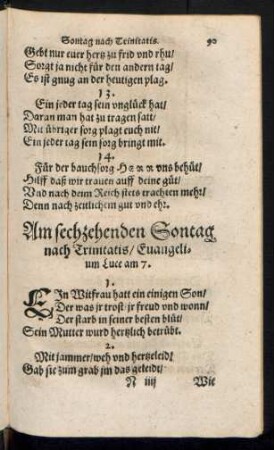 Sontag nach Trinitatis. 90
Gebt nur euer hertz zu frid vnd rhu/
Sorgt ja nicht für den andern tag/
Es ist gnug an der heutigen plag.
13.
Ein jeder tag sein vnglück hat/
Daran man hat zu tragen satt/
Mit übriger sorg plagt euch nit/
Ein jeder tag sein sorg bringt mit.
14.
Für der bauchsorg HERR vns behüt/
Hilff daß wir trauen auff deine güt/
Vnd nach dem Reich stets trachten mehr/
Denn nach zeitlichem gut vnd ehr.
Am sechzehenden Sontag
nach Trinitatis/ Euangeli-
um Luce am 7.
1.
EIn Witfrau hatt ein einigen Son/
Der was jr trost/ jr freud vnd wonn/
Der starb in seiner besten blüt/
Sein Mutter wurd hertzlich betrübt.
2.
Mit jammer/ weh vnd hertzeleid/
Gab sie zum grab jm das geleidt/
N iiij Wie